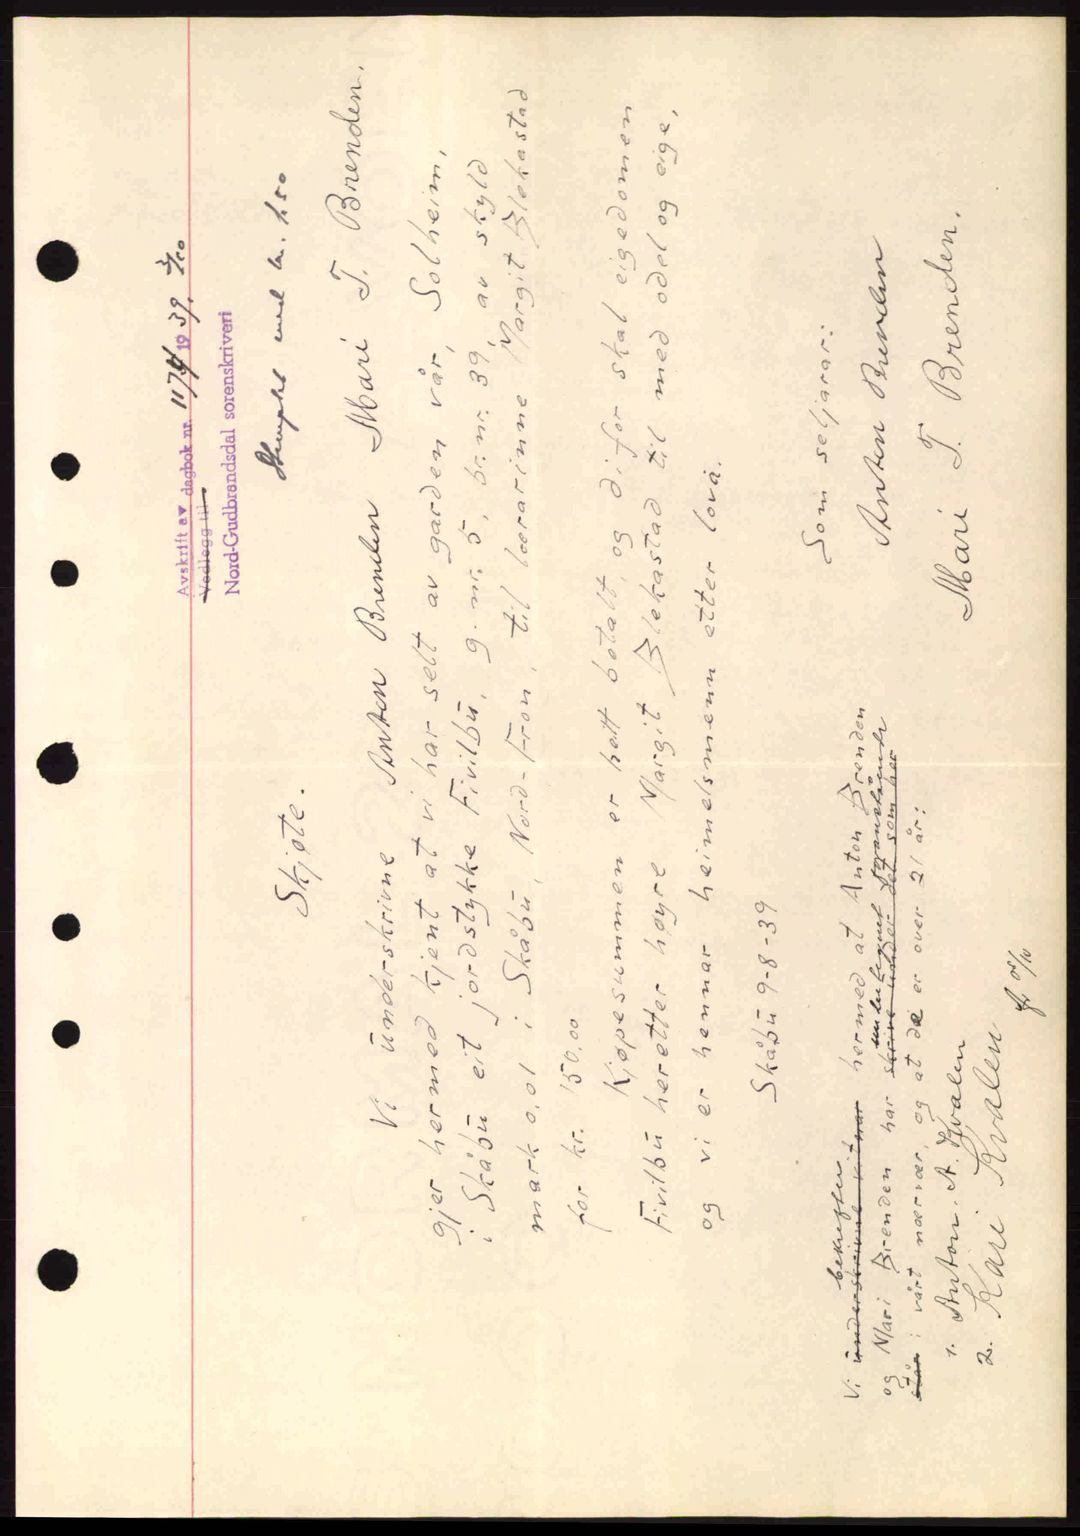 Avskrift av dagbok nr. 1174 1939, 3/10
Vedlegg til
Nord-Gudbrandsdal sorenskriveri
Stemplet med kr. 1.50
Skjøte.
Vi underskrivne Anton Brenden Mari T. Brenden,
gjer hermed kjent at vi har selt av garden vår, Solheim,
i Skåbu eit jordstykke Fivilbu, g. nr. 5, br.nr. 39, av skyld
mark 0.01 i Skåbu, Nord-Fron, til lærarinne Margit Blekastad
for kr. 150.00
Kjøpesummen er heilt betalt, og difor skal eigedomen
Fivilbu heretter høyre Margit Blekastad til med odel og eige,
og vi er hennar heimelsmenn etter lova.
Skåbu 9-8-39
Som seljarar:
Anton Brenden
Mari T. Brenden.
bekrefter
Vi underskrivne vitnar hermed at Anton Brenden
underteqnet foranstående
og Mari Brenden har skrive under det som her
står i vårt nærvær, og at de er over 21 år:
1. Anton. A. Kvalen
2. Kari Kvalen